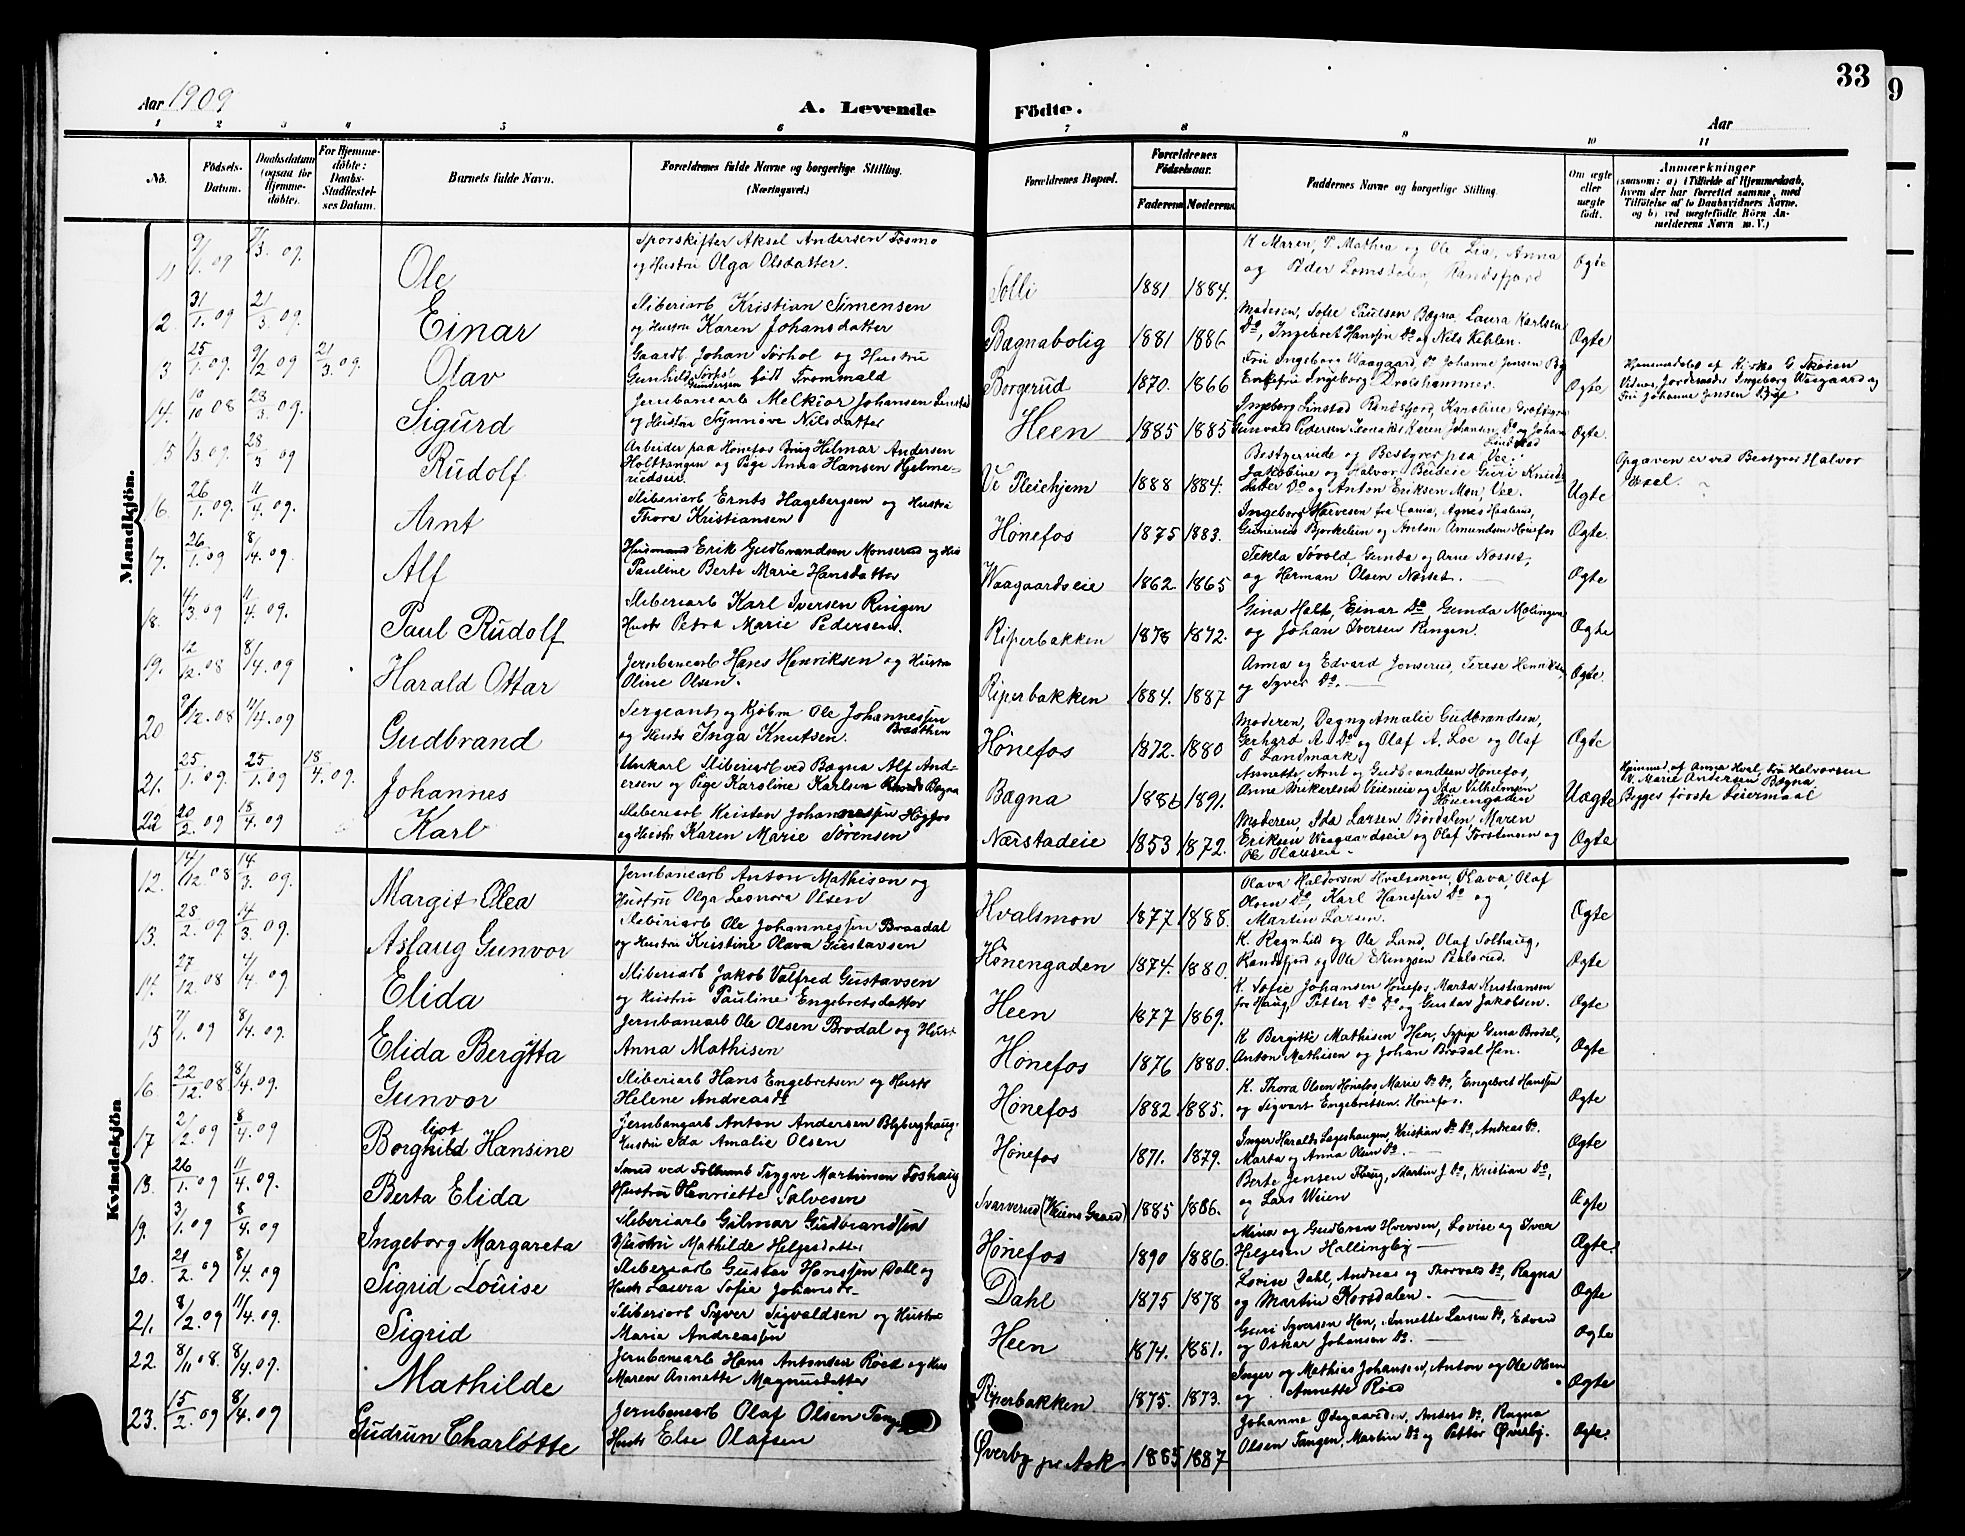 Aar 1909
A. Levende
Födte.
Aar
33
9
1 2 3 4 5 6 7 8 9 10 11
No.
Födsels-
Datum.
Daabsdatum
(ogsaa for
Hjemme-
döbte).
For Hjemme-
döbte:
Daabs-
Stadfæstel-
ses Datum.
Barnets fulde Navn.
Forældrenes fulde Navne og borgerlige Stilling.
(Næringsvei.)
Forældrenes Bopæl.
Forældrenes
Födselsaar.
Faderens Moderens
Faddernes Navne og borgerlige Stilling.
Om ægte
eller
uægte
födt.
Anmærkninger
(saasom: a) i Tilfælde af Hjemmedaab,
hvem der har forrettet samme, med
Tilföielse af to Daabsvidners Navne,
og b) ved uægtefödte Börn An-
melderens Navn m. V.)
Mandkjön.
11 9/1.09 7/3.09. Ole
Sporskifter Aksel Andersen Tosmo
og Hustru Olga Olsdatter.
Solli 1881 1884.
K Maren, P Mathea og Ole Lia, Anna
og Peder Lomsdalen, Randsfjord
Ægte
2. 31/1.09 21/3.09. Einar
Sliberiarb Kristian Simensen
og Hustru Karen Johansdatter
Bægnabolig 1881 1886
Moderen, Sofie Paulsen Bægna Laura Karlsen
Do, Ingebret Hanssen Do og Nils Kihlen.
Ægte
3. 25/1.09. 9/2 09 21/3.09. Olav
Gaardb. Johan Sørhol og Hustru
Gunhild Gundersen født Trommald
Borgerud 1870. 1866
Fru Ingeborg Waagaard, Johanne Jensen
Enkefru Ingeborg Drolshammer.
Ægte
Hjemmedøbt af Kirkes. G. Skøien
Vidner Jordemoder Ingeborg Waagaard og
Fru Johanne Jensen
14. 10/10 08 28/3 09. Sigurd
Jernbanearb Melkior Johansen Linstad
og Hustru Synnøve Nilsdatter
Heen 1885 1885
Ingeborg Linstad Randsfjord, Karoline
Gunvald Pedersen Karen Johansen Do og Johan
Lindstad
Ægte.
5 1/3 09. 28/3 09 Rudolf
Arbeider paa Hønefos Brug Hilmar Andersen
Holttangen og Pige Anna Hansen Hjelme-
rudseie.
Ve Pleiehjem 1888 1884.
Bestyrerinde og Bestyrer paa Vee:
Jakobine og Halvor, Budeie Guri Knuds-
datter Do og Anton Eriksen Moe, Vee.
Uægte
Opgaven er ved Bestyrer Halvor
16. 26/1.09. 11/4.09. Arnt
Sliberiarb Ernts Hagebergsen og Hustru
Thora Kristiansen
Hønefos 1875 1883.
Ingeborg Halvesen fra Agnes
Bjørkelien og Anton Amundsen Hønefos
Ægte.
17. 26/1 09 8/4.09. Alf
Husmand Erik Gudbrandsen Monserud og Hus
Pauline Berte Marie Hansdatter
Waagaardseie 1862 1865
Tekla Søvold, Gunda og Arne Næsset,
og Herman Olsen Næsset.
Ægte
18. 4/3 09 11/4.09. Paul Rudolf
Sliberiarb Karl Iversen Ringen
Hustr Petra Marie Pedersen.
Riperbakken 1878 1872.
Gina Holt, Einar Do Gunda
og Johan Iversen Ringen.
Ægte
19. 12/12.08 8/4.09 Harald Ottar
Jernbanearb Hans Henriksen og Hustru
Oline Olsen.
Riperbakken 1884. 1887
Anna og Edvard Jonserud, Terese Henriksen,
og Syver Do.
Ægte.
20 /12.08 11/4.09 Gudbrand
Sergeant og Kjøbm Ole Johannessen
Braathen
og Hustr Inga Knutsen.
Hønefos 1872. 1880
Moderen, Dagny Amalie Gudbrandsen,
Gerhard A. Do og Olaf A. Loe og Olaf
O Landmark
Ægte
21. 25/1.09. 25/1.09 18/4.09. Johannes
Unkarl Sliberiarb ved Bægna Alf And-
ersen og Pige Karoline Karlsen Bægna
Bægna 1886 1891.
Annette, Arnt og Gudbrandsen Hønefos,
Anne Mikkelsen Veieneie og Ida Vilhelmsen
Hønengaden
Uægte
Hjemmed. af Anna Hval, Fru Halvorsen
V. Marie Andersen Bægna
Begges første Leiermaal
22 20/2.09 18/4.09 Karl
Sliberiarb Kristen Johannessen
og Hustr Karen Marie Sørensen
Nærstadeie 1853 1872.
Moderen, Ida Larsen Børdalen, Maren
Eriksen Waagaardseie og Olaf Torstensen og
Ole Olausen.
Ægte
Kvindekjön
12. 14/12.08 14/3. 09. Margit Olea
Jernbanearb Anton Mathisen og
Hustru Olga Leonora Olsen
Hvalsmon 1877 1888.
Olava Haldorsen Hvalsmon, Olava, Olaf
Olsen Do, Karl Hanssen Do og
Martin Larsen.
Ægte
13. 28/2.09 14/3 09. Aslaug Gunvor
Sliberiarb Ole Johannessen Braadal
og Hustru Kristine Olava Gustavsen
Hønengaden 1874. 1880.
K. Regnhild og Ole Lund, Olaf Solhaug,
Randsfjord og Ole Ellingsen
Ægte
14. 27/12 08 4/4.09 Elida
Sliberiarb Jakob Valfred Gustavsen
og Hustru Pauline Engebretsdatter
Heen 1877 1869.
K. Sofie Johansen Hønefos, Marta Kristiansen
fra Haug, Petter Do Do og Gustav Jakobsen.
Ægte
15 7/1.09 8/4.09. Elida Bergitta
Jernbanearb Ole Olsen Brodal og Hustr
Anna Mathisen
Hønefos 1876 1880.
K Bergitte Mathisen Hen, Sypige Gina Brodal,
Anton Mathisen og Johan Brodal Hen.
Ægte
16. 22/12.08 8/4.09. Gunvor
Sliberiarb Hans Engebretsen og Hustr
Helene Andreasd
Hønefos 1882 1885.
K. Thora Olsen Hønefos, Marie Do Do, Engebret Hanssen
og Sigvart Engebretsen Hønefos.
Ægte
17 2/2.09 8/4.09 Borghild Hansine
liot
Jernbangarb Anton Andersen Blyberghaug.
Hustru Ida Amalie Olsen
Hønefos 1871. 1879.
Inger Haralds Lageshaugen, Kristian Do Do, Andreas Do.
Marta og Anna Olsen Do.
Ægte
18. 26/1.09 11/4.09. Berta Elida
Smed ved Trygve Martinsen Foshaug
Hustru Henriette Salvesen
Svarverud (Veiens Gaard) 1885 1886.
Berte Jensen Martin J. Do, Kristian Do,
og Lars Weien
Ægte
19. 3/1.09 8/4 09 Ingeborg Margareta
Sliberiarb Gilmar Gudbrandsen
Hustru Mathilde Helgesdatter
Hønefos 1890 1886.
Mina og Gudbran Hversen, Lovise og Iver
Helgesen Hallingby
Ægte.
20. 21/2.09 8/4.09 Sigrid Louise
Sliberiarb Gustav Hanssen Dahl og
Hustr Lavra Sofie Johansd.
Dahl 1875 1878
Lovise Dahl, Andreas og Thorvald Do, Ragna
og Martin Korsdalen.
Ægte
21. 8/2.09 11/4.09. Sigrid
Sliberiarb Syver Sigvaldsen og Hustru
Marie Andreassen
Heen 1874. 1881.
Guri Syversen Hen, Annette Larsen Do, Edvard
og Oskar Johansen Do.
Ægte
22. 8/11 08. 8/4.09. Mathilde
Jernbanearb Hans Antonsen Røed og Hus
Maren Annette Magnusdatter
Riperbakken 1875. 1873.
Inger og Mathias Johansen, Anton og Ole Olsen
og Annette Røed
Ægte
23. 15/2.09 8/4.09 Gudrun Charlotte
Jernbanearb Olaf Olsen Tange
Hustr Else Olafsen
Øverby pr Ask 1885 1887
Johanne Ødegaarden, Anders Do, Ragna
Olsen Tangen, Martin Do og Petter Øverby.
Ægte.